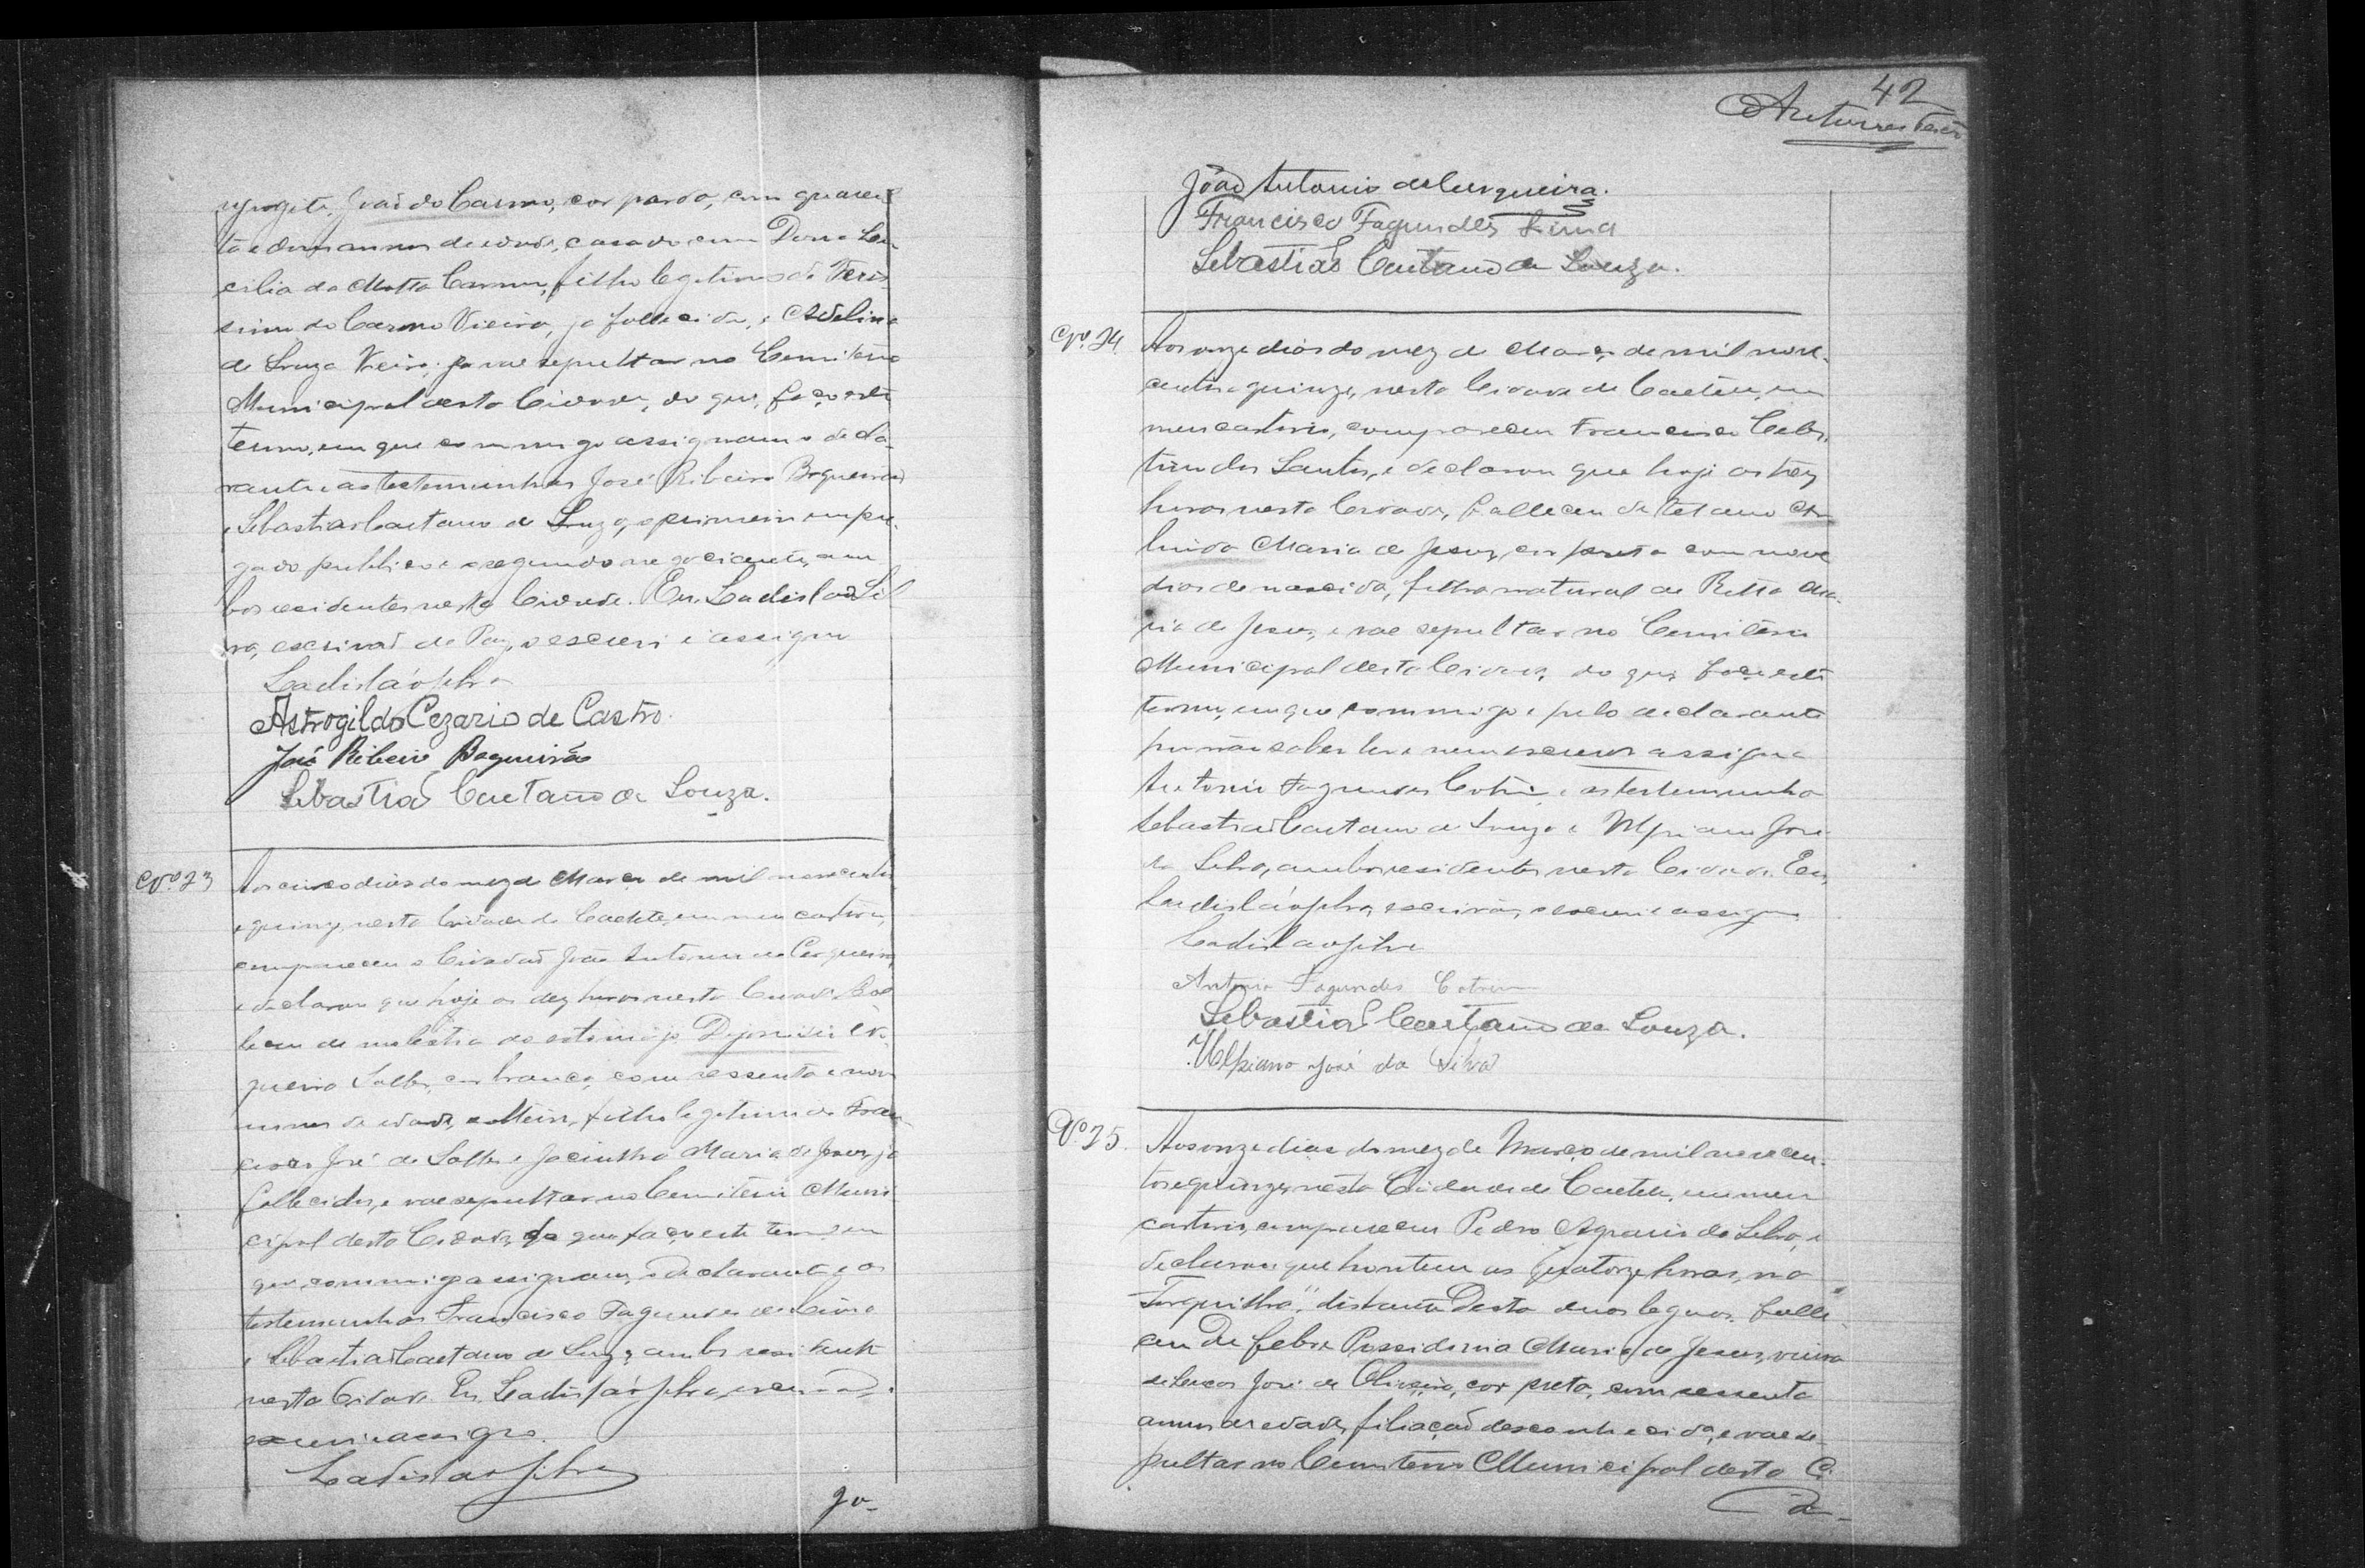 João do Carmo, cor parda, com quaren
ta e dous annos de edade, casado com Dona Cen
cilia da Motta Carmo, filho legitimo de Veris
simo do Carmo Vieira, ja fallecido, e Adelina
de Souza Vieira; e vae sepultar no Cemiterio
Municipal desta Cidade, do que, faço este
termo, em que commigo assignam o decla
rante e as testemunhas José Ribeiro Baqueirão
e Sebastião Caetano de Souza, o primeiro empre
gado publico e o segundo negociante, am
bos residentes nesta Cidade. Eu, Ladislao Sil
va, escrivão de Paz, o escrevi e assigno
Ladisláo Silva
Astrogildo Cezario de Castro.
José Ribeiro Baqueirão
Sebastião Caetano de Souza.
Nº 23 Aos cinco dias do mez de Março de mil novecentos
e quinze, nesta Cidade de Caetité, em meu cartorio,
compareceu o Cidadão João Antonio de Cerqueira,
e declarou que hoje as dez horas nesta Cidade fal
leceu de molestia do estomago
Salles, cor branca, com sessenta e nove
annos de edade, solteiro, filho legitimo de Fran
cisco José de Salles e Jacintha Maria de Jesus, ja
fallecidos, e vae sepultar no Cemiterio Muni
cipal desta Cidade, do que faço este termo em
que, commigo assignam, o declarante, e as
testemunhas Francisco Fagundes de Lima
e Sebastião Caetano de Souza, ambos residentes
nesta Cidade. Eu, Ladisláo Silva, escrivão,
escrevi e assigno.
Ladislao Silva
Jo-
42
João Antonio de Cerqueira.
Francisco Fagundes Lima
Sebastião Caetano de Souza.
Nº 24 Aos onze dias do mez de Março de mil nove-
centos e quinze, nesta Cidade de Caetité, em
meu cartorio, compareceu Francisco Celes
tino dos Santos, e declarou que hoje as trez
horas nesta Cidade, falleceu de tetano
Maria de Jesus, cor preta com nove
dias de nascida, filha natural de Ritta Ma-
ria de Jesus, e vae sepultar no Cemiterio
Municipal desta Cidade, do que, faço este
termo, em que commigo e pelo declarante
por não saber ler e nem escrever assigna
Antonio Fagundes Cotrim, e as testemunhas
Sebastião Caetano de Souza e Ulpiano José
da Silva, ambos residentes nesta Cidade. Eu,
Ladisláo Silva, escrivão, o escrevi e assigno
Ladislao Silva
Antonio Fagundes Cotrim
Sebastião Caetano de Souza.
Ulpiano José da Silva
Nº 25. Aos onze dias do mez de Março de mil novecen-
tos e quinze, nesta Cidade de Caetité, em meu
cartorio, compareceu Pedro Agrario da Silva, e
declarou que hontem as quatorze horas, na
"Forquilha", distante desta duas leguas, falle-
ceu de febre Possidonia Maria de Jesus, viuva
de Lucas José de Oliveira, cor preta, com sessenta
annos de edade, filiação desconhecida, e vae se
pultar no Cemiterio Municipal desta Ci
da-